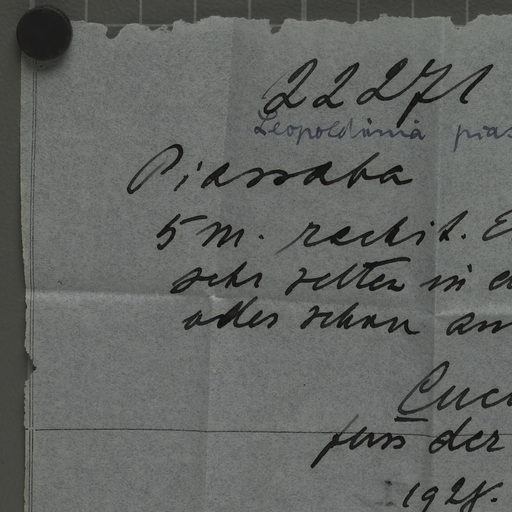 22271
Leopoldinia pias
Piassaba
5 m. rachit.
sehr selten in
oder schon an
Cuc
fuss der
1928.